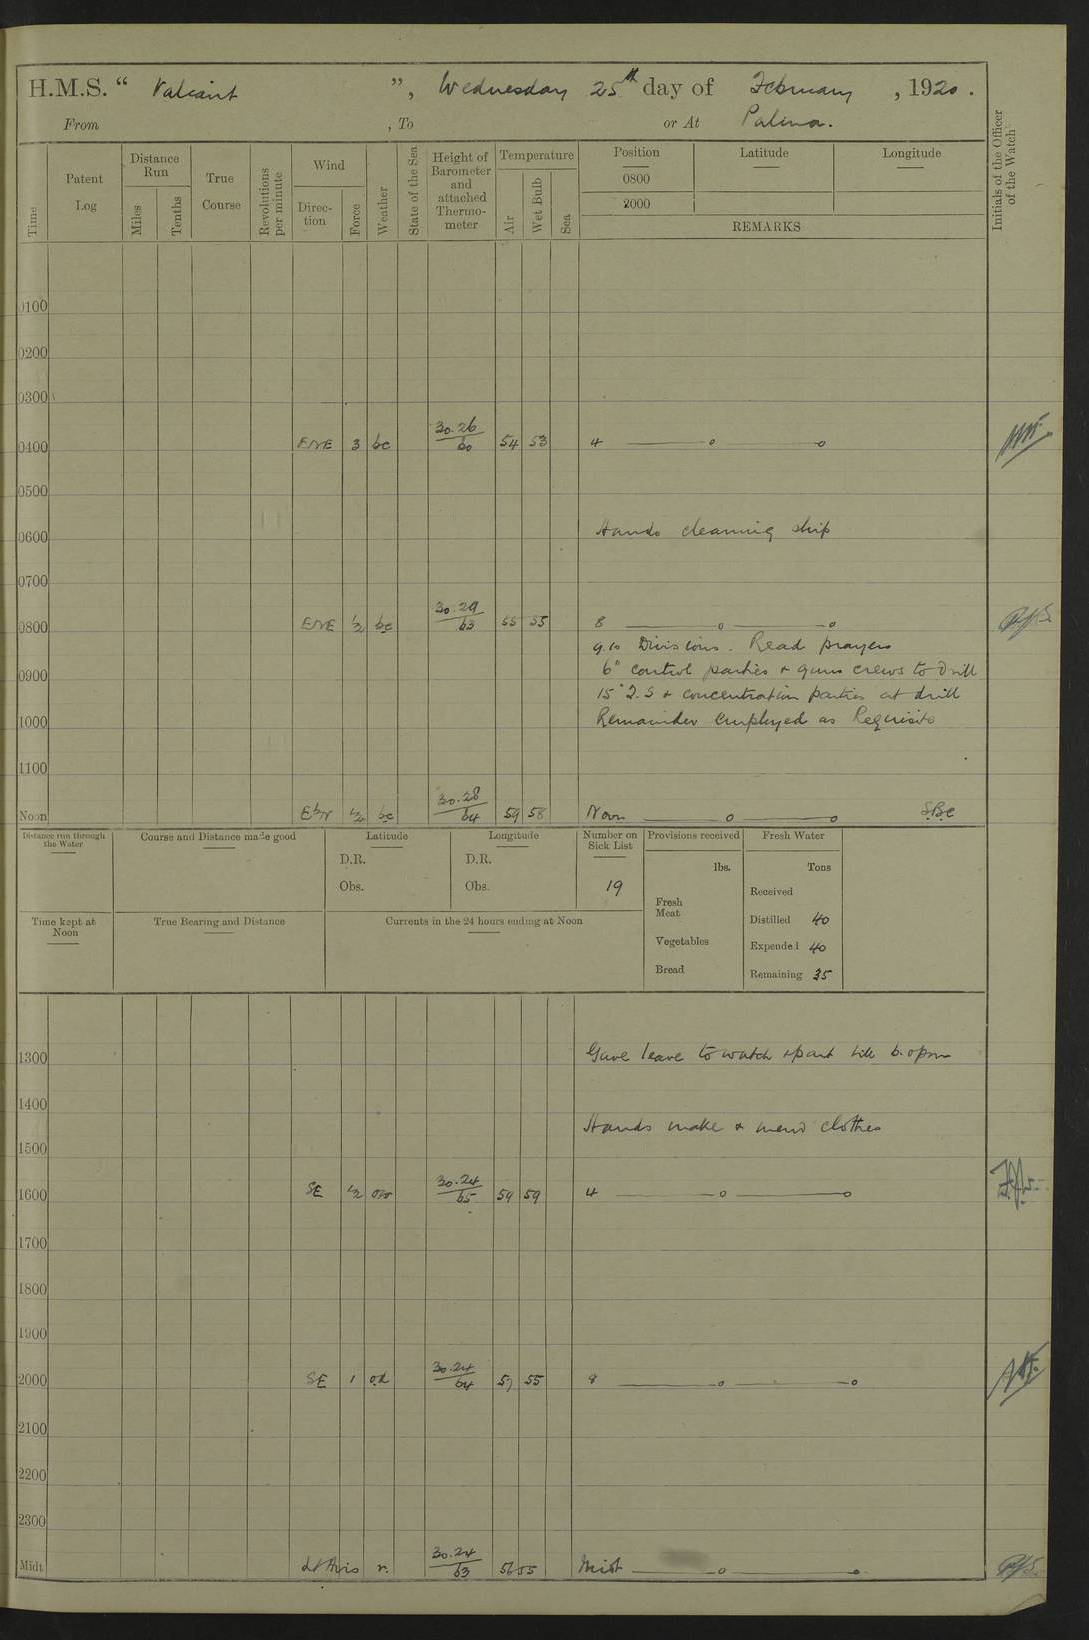 H.M.S. “ Valiant ”, Wednesday 25th day of February, 1920.
From , To or At Palma.
Time
Patent Log
Distance Run
Miles
Tenths
True Course
Revolutions per minute
Wind
Direc- tion
Force
Weather
State of the Sea
Height of Barometer and attached Thermo- meter
Temperature
Air
Wet Bulb
Sea
Position
Latitude
Longitude
0800
2000
REMARKS
Initials of the Officer of the Watch
0100
0200
0300
0400 ENE 3 bc 30.26/60 54 53 4
0500
0600 Hands cleaning ship
0700
0800 ENE ½ bc 30.29/63 55 55 8
9.10 Divisions. Read prayers
0900 6" control parties & guns crews to Drill
15" T.S & concentration parties at drill
1000 Remainder employed as Requisite
1100
Noon EbN ½ bc 30.28/64 59 58 Noon
Distance run through the Water
Course and Distance made good
Latitude
D.R.
Obs.
Longitude
D.R.
Obs.
Number on Sick List
19
Provisions received
lbs.
Fresh Meat
Vegetables
Bread
Fresh Water
Tons
Received
Distilled 40
Expended 40
Remaining 35
Time kept at Noon
True Bearing and Distance
Currents in the 24 hours ending at Noon
1300 Gave leave to watch & part till 6.0pm
1400
Hands make & mend clothes
1500
1600 SE ½ 30.24/65 59 59 4
1700
1800
1900
2000 SE 1 od 30.24/64 57 55 8
2100
2200
2300
Midt Lt Airs r. 30.24/63 56 55 Midt